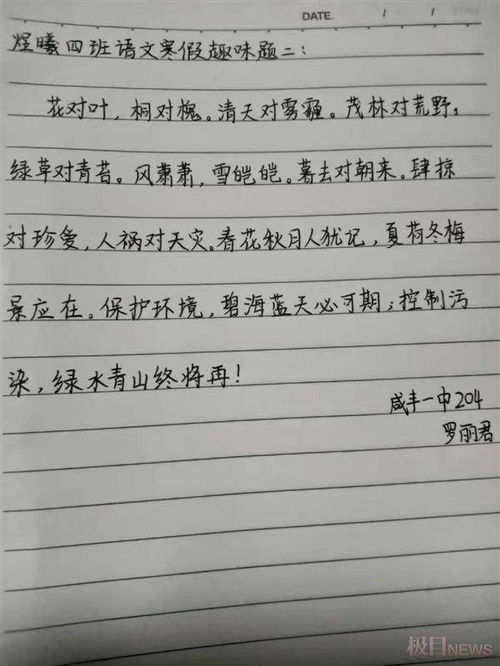 DATE. / /
煜曦四班语文寒假趣味题二：
花对叶，桐对槐。清天对雾霾。茂林对荒野，
绿草对青苔。风萧萧，雪皑皑。暮去对朝来。肆掠
对珍爱，人祸对天灾。春花秋月人犹记，夏荷冬梅
景应在。保护环境，碧海蓝天必可期；控制污
染，绿水青山终将再！
咸丰一中204
罗丽君
极目NEWS